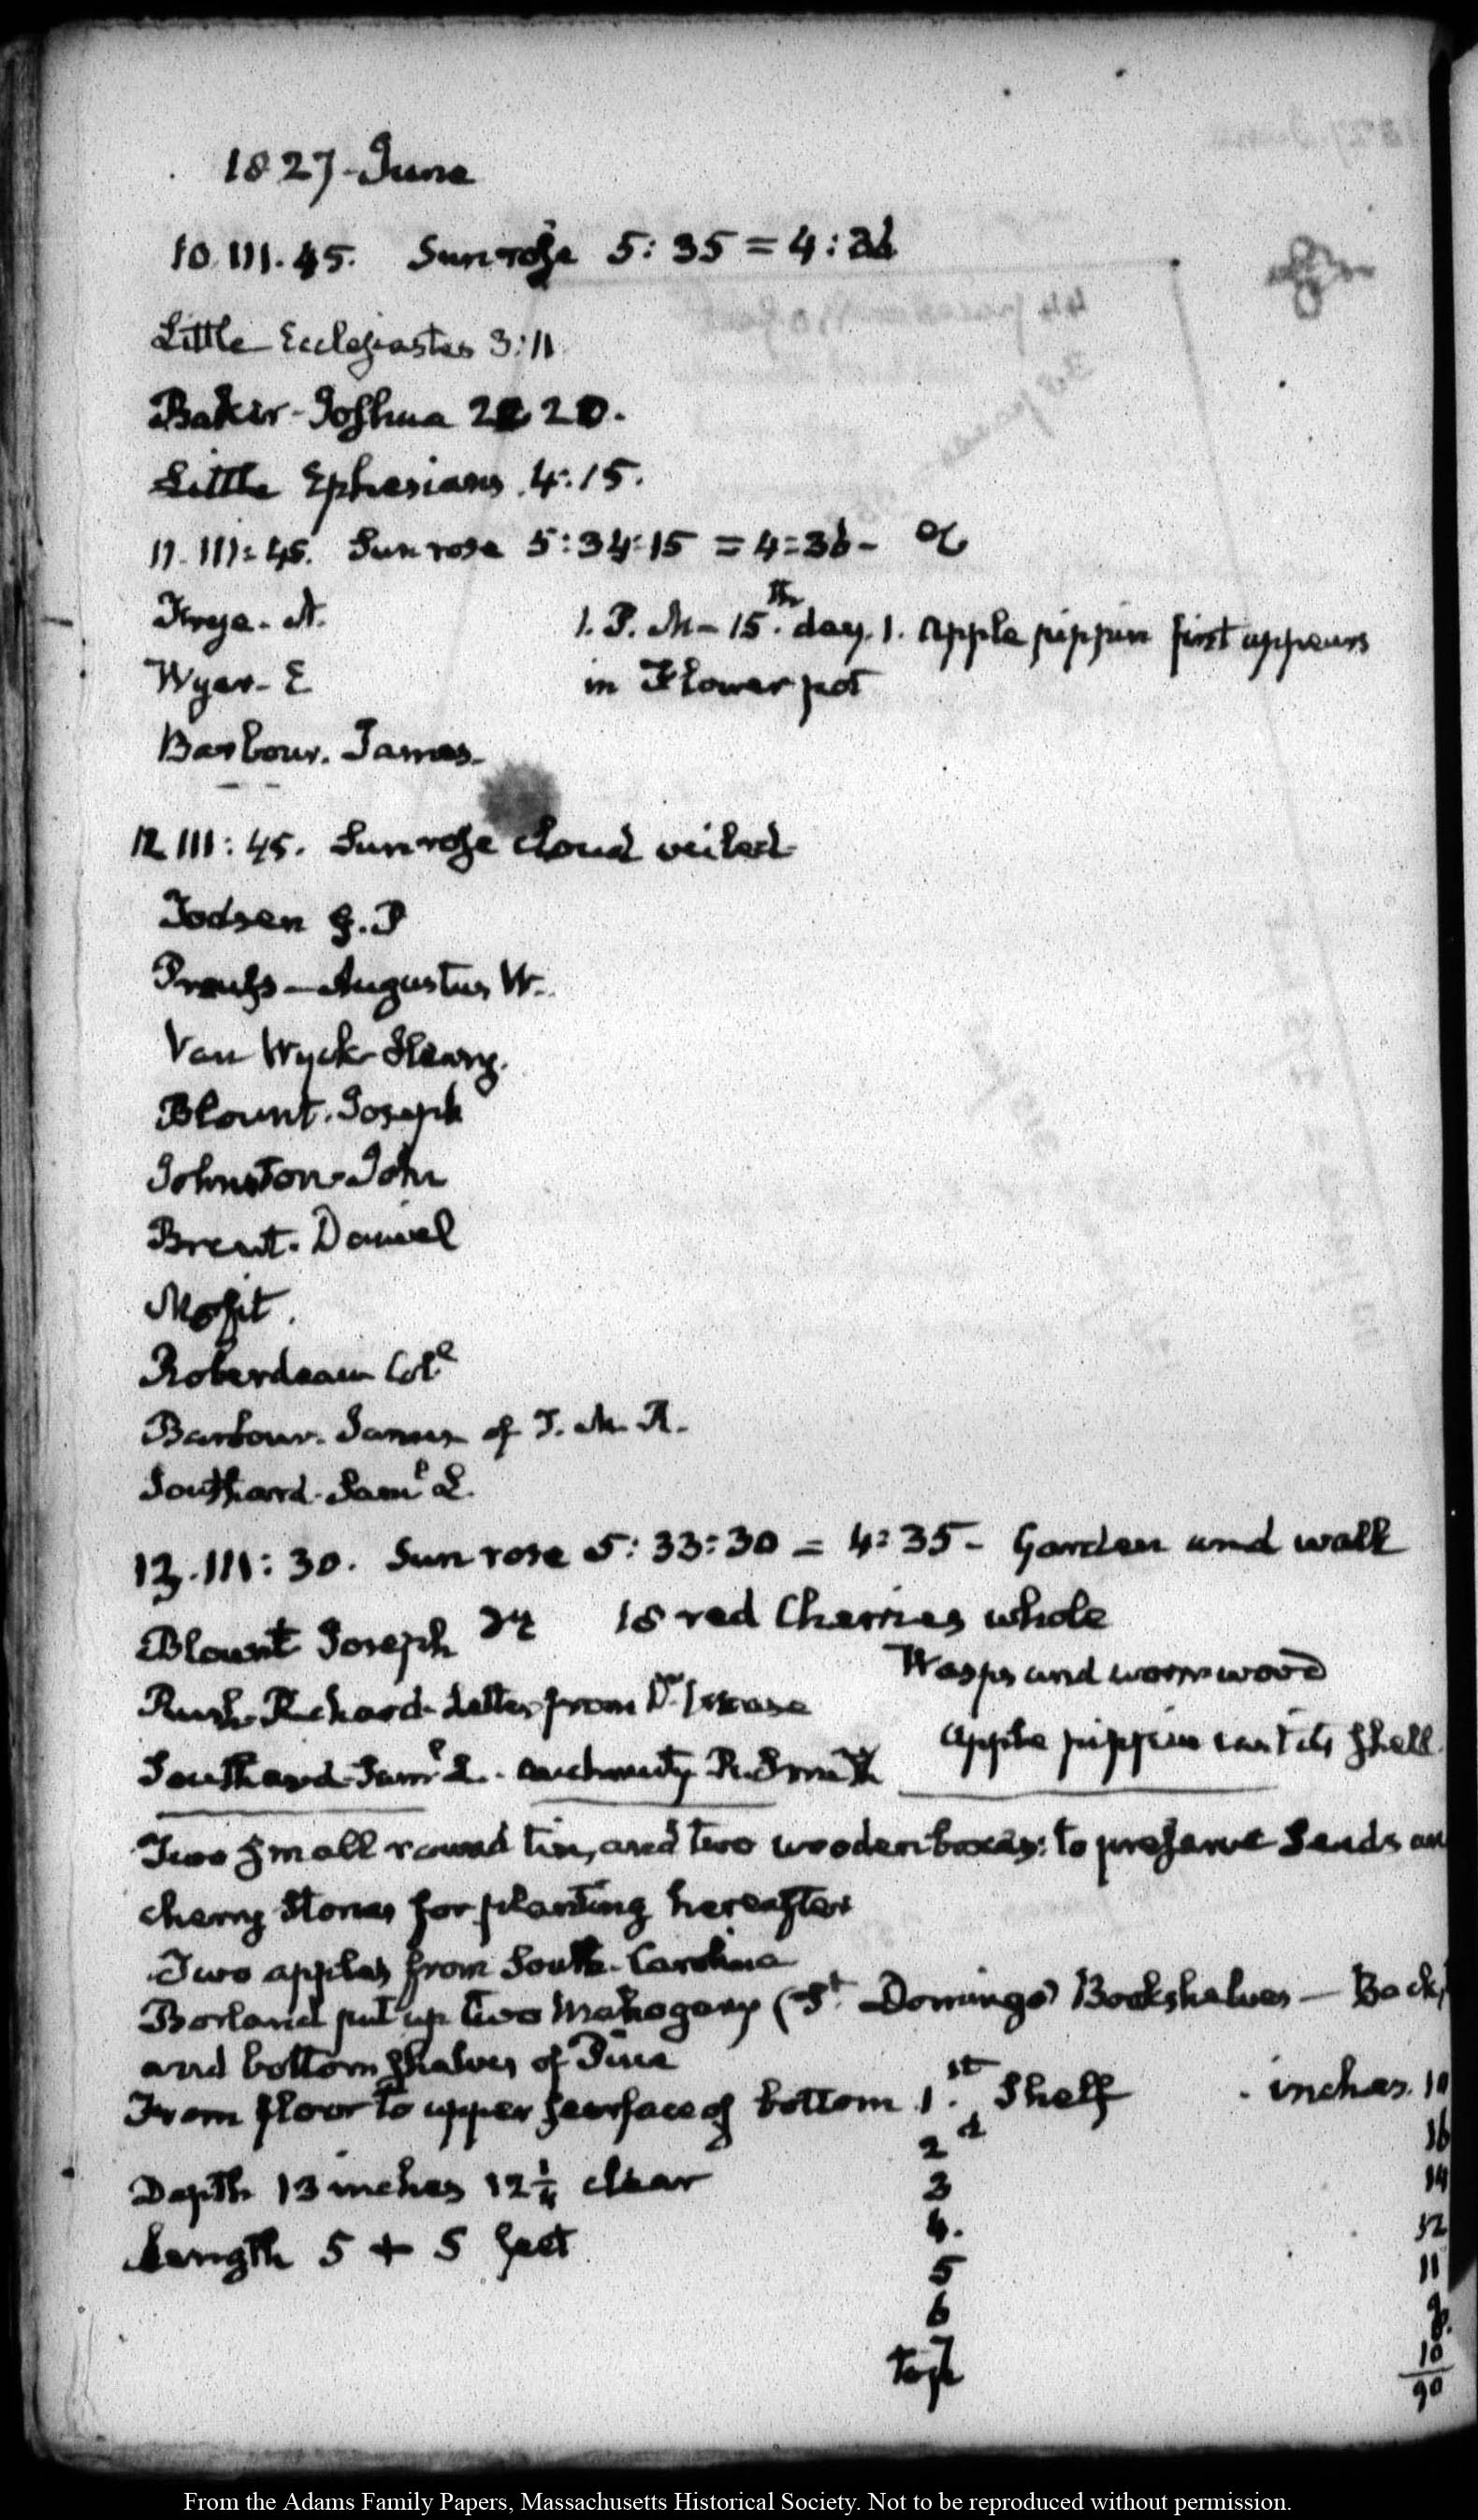 1827. June
10. III. 45. Sun rose 5: 35 = 4: 36
Little Ecclesiastes 3:11
Baker - Joshua 22 20.
Little Ephesians 4:15.
11. III: 45. Sun rose 5:34:15 = 4:36-
Frye. N.
1. P. M - 15.th day. 1. Apple pippin first appears
Wyer - E
in Flower pot
Barbour. James.
12 III: 45. Sun rose cloud veiled
Todsen G. P
Preuss - Augustus W.
Van Wyck - Henry.
Blount. Joseph
Johnston - John
Brent. Daniel
Mofit.
Roberdeau Col.l
Barbour. James of T. M. R.
Southard. Sam.l L.
13. III: 30. Sun rose 5: 33: 30 = 4: 35 - Garden and walk
Blount Joseph 18 red Cherries whole
Wasps and wormwood
Rush. Richard. Letter from Dr
Apple pippin cast its shell
Southard. Sam.l L. R. Smith
Two small round tin, and two wooden boxes: to preserve Seeds an
cherry stones for planting hereafter
Two apples from South-Carolina
Borland put up two Mahogany (St. Domingo) Bookshelves - Back,
and bottom shelves of Pine
From floor to upper surface of bottom 1.st Shelf inches. 10
2d 16
Depth 13 inches 12 1/4 clear 3 14
4. 12
Length 5 + 5 feet 5 11
6
top 7 10
90
From the Adams Family Papers, Massachusetts Historical Society. Not to be reproduced without permission.